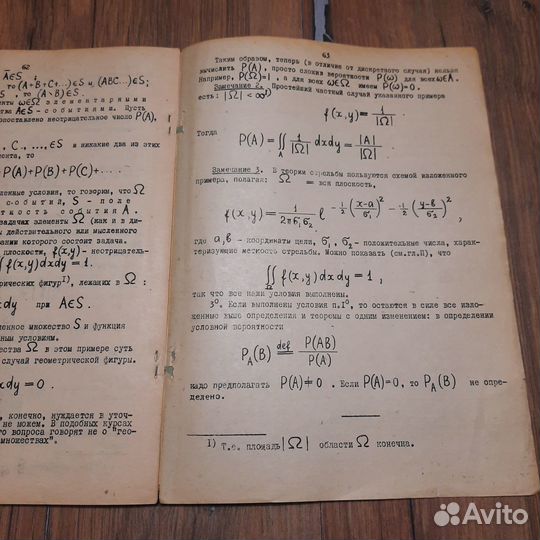 62
Ā∈S;
то (A+B+C+...)∈S и (ABC...)∈S;
, то (A∖B)∈S.
ω∈Ω элементарными
A∈S - событиями. Пусть
поставлено неотрицательное число P(A),
, C, ..., ∈S и никакие два из этих
то
P(A)+P(B)+P(C)+....
условия, то говорим, что Ω
событий, S - поле
события A.
задачах элементы Ω (как и в
действительного или мысленного
которого состоит задача.
плоскости, f(x,y)- неотрицатель-
∬f(x,y)dxdy=1.
фигур I), лежащих в Ω:
dxdy при A∈S.
множество S и функция
условиям.
Ω в этом примере суть
случай геометрической фигуры.
dxdy=0.
, конечно, нуждается в уточ-
не можем. В подобных курсах
вопроса говорят не о "гео-
множествах".
63
Таким образом, теперь (в отличие от дискретного случая) нельзя
вычислить P(A), просто сложив вероятности P(ω) для всех ω∈A.
Например, P(Ω)=1, а для всех ω∈Ω имеем P(ω)=0.
Замечание 2. Простейший частный случай указанного примера
есть: |Ω|<∞ I)
f(x,y)=1/|Ω|.
Тогда
P(A)=∬_A 1/|Ω| dxdy=|A|/|Ω|
Замечание 3. В теории стрельбы пользуются схемой изложенного
примера, полагая: Ω = вся плоскость,
f(x,y)=1/(2πσ₁σ₂) e^(-½((x-a)/σ₁)² - ½((y-b)/σ₂)²),
где a,b - координаты цели, σ₁, σ₂ - положительные числа, харак-
теризующие меткость стрельбы. Можно показать (см.гл.П), что
∬_Ω f(x,y)dxdy=1,
так что все наши условия выполнены.
3⁰. Если выполнены условия п.1⁰, то остаются в силе все изло-
женные выше определения и теоремы с одним изменением: в определении
условной вероятности
P_A(B) def= P(AB)/P(A)
надо предполагать P(A)≠0. Если P(A)=0, то P_A(B) не опре-
делено.
I) Т.е. площадь |Ω| области Ω конечна.
Avito